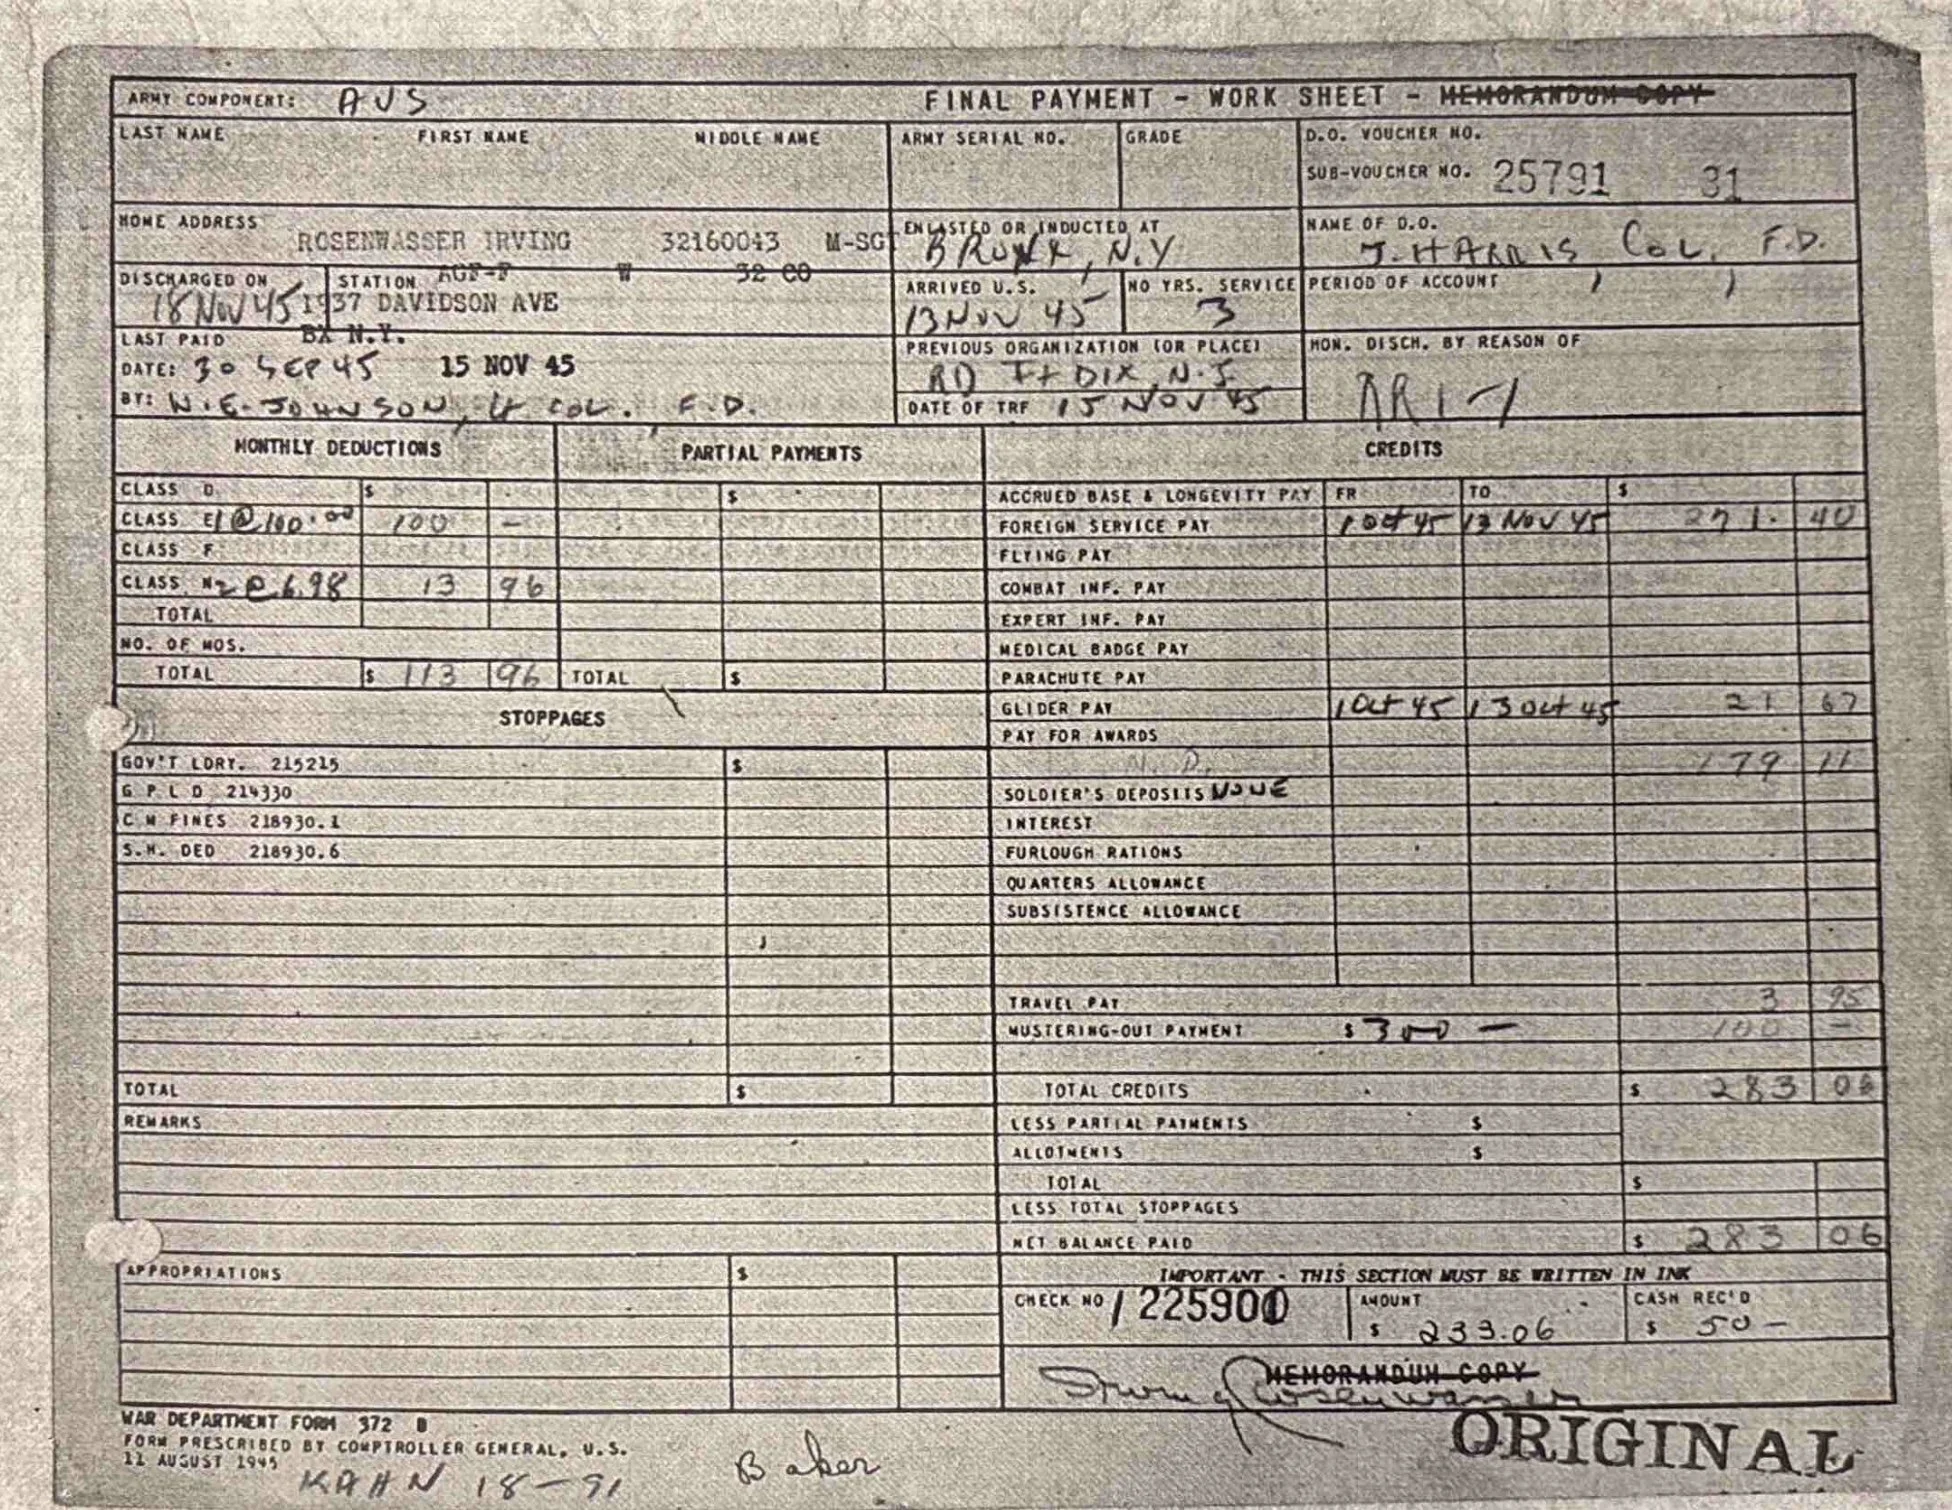 ARMY COMPONENT: AUS FINAL PAYMENT - WORK SHEET - MEMORANDUM COPY
LAST NAME FIRST NAME MIDDLE NAME ARMY SERIAL NO. GRADE D.O. VOUCHER NO.
SUB-VOUCHER NO. 25791 31
HOME ADDRESS ENLASTED OR INDUCTED AT NAME OF D.O.
ROSENWASSER IRVING 32160043 M-SGT BRONX, N.Y J. HARRIS COL. F.D.
AGF-P W 32 CO
DISCHARGED ON STATION ARRIVED U.S. NO YRS. SERVICE PERIOD OF ACCOUNT
18 NOV 45 1937 DAVIDSON AVE 13 NOV 45 3
BX N.Y.
LAST PAID PREVIOUS ORGANIZATION (OR PLACE) HON. DISCH. BY REASON OF
DATE: 30 SEP 45 15 NOV 45 RD Ft DIX, N.J. AR1-1
BY: W.E. JOHNSON, Lt COL. F.D. DATE OF TRF 15 NOV 45
MONTHLY DEDUCTIONS PARTIAL PAYMENTS CREDITS
CLASS D $ $ ACCRUED BASE & LONGEVITY PAY FR TO $
CLASS E 1 @ 100.00 100 - FOREIGN SERVICE PAY 1 Oct 45 13 NOV 45 271. 40
CLASS F FLYING PAY
CLASS N 2 @ 6.98 13 96 COMBAT INF. PAY
TOTAL EXPERT INF. PAY
NO. OF MOS. MEDICAL BADGE PAY
TOTAL $ 113 96 TOTAL $ PARACHUTE PAY
GLIDER PAY 1 Oct 45 13 Oct 45 21 67
STOPPAGES PAY FOR AWARDS
GOV'T LDRY. 215215 $ N.D. 179 11
G P L D 214330 SOLDIER'S DEPOSITS NONE
C M FINES 218930.1 INTEREST
S.H. DED 218930.6 FURLOUGH RATIONS
QUARTERS ALLOWANCE
SUBSISTENCE ALLOWANCE
TRAVEL PAY 3 95
MUSTERING-OUT PAYMENT $ 300 - 100 -
TOTAL $ TOTAL CREDITS $ 283 06
REMARKS LESS PARTIAL PAYMENTS $
ALLOTMENTS $
TOTAL $
LESS TOTAL STOPPAGES
NET BALANCE PAID $ 283 06
APPROPRIATIONS $ IMPORTANT - THIS SECTION MUST BE WRITTEN IN INK
CHECK NO 1225900 AMOUNT $ 233.06 CASH REC'D $ 50 -
MEMORANDUM COPY
Irving Rosenwasser
WAR DEPARTMENT FORM 372 B ORIGINAL
FORM PRESCRIBED BY COMPTROLLER GENERAL, U.S.
11 AUGUST 1945
KAHN 18-91 Baker